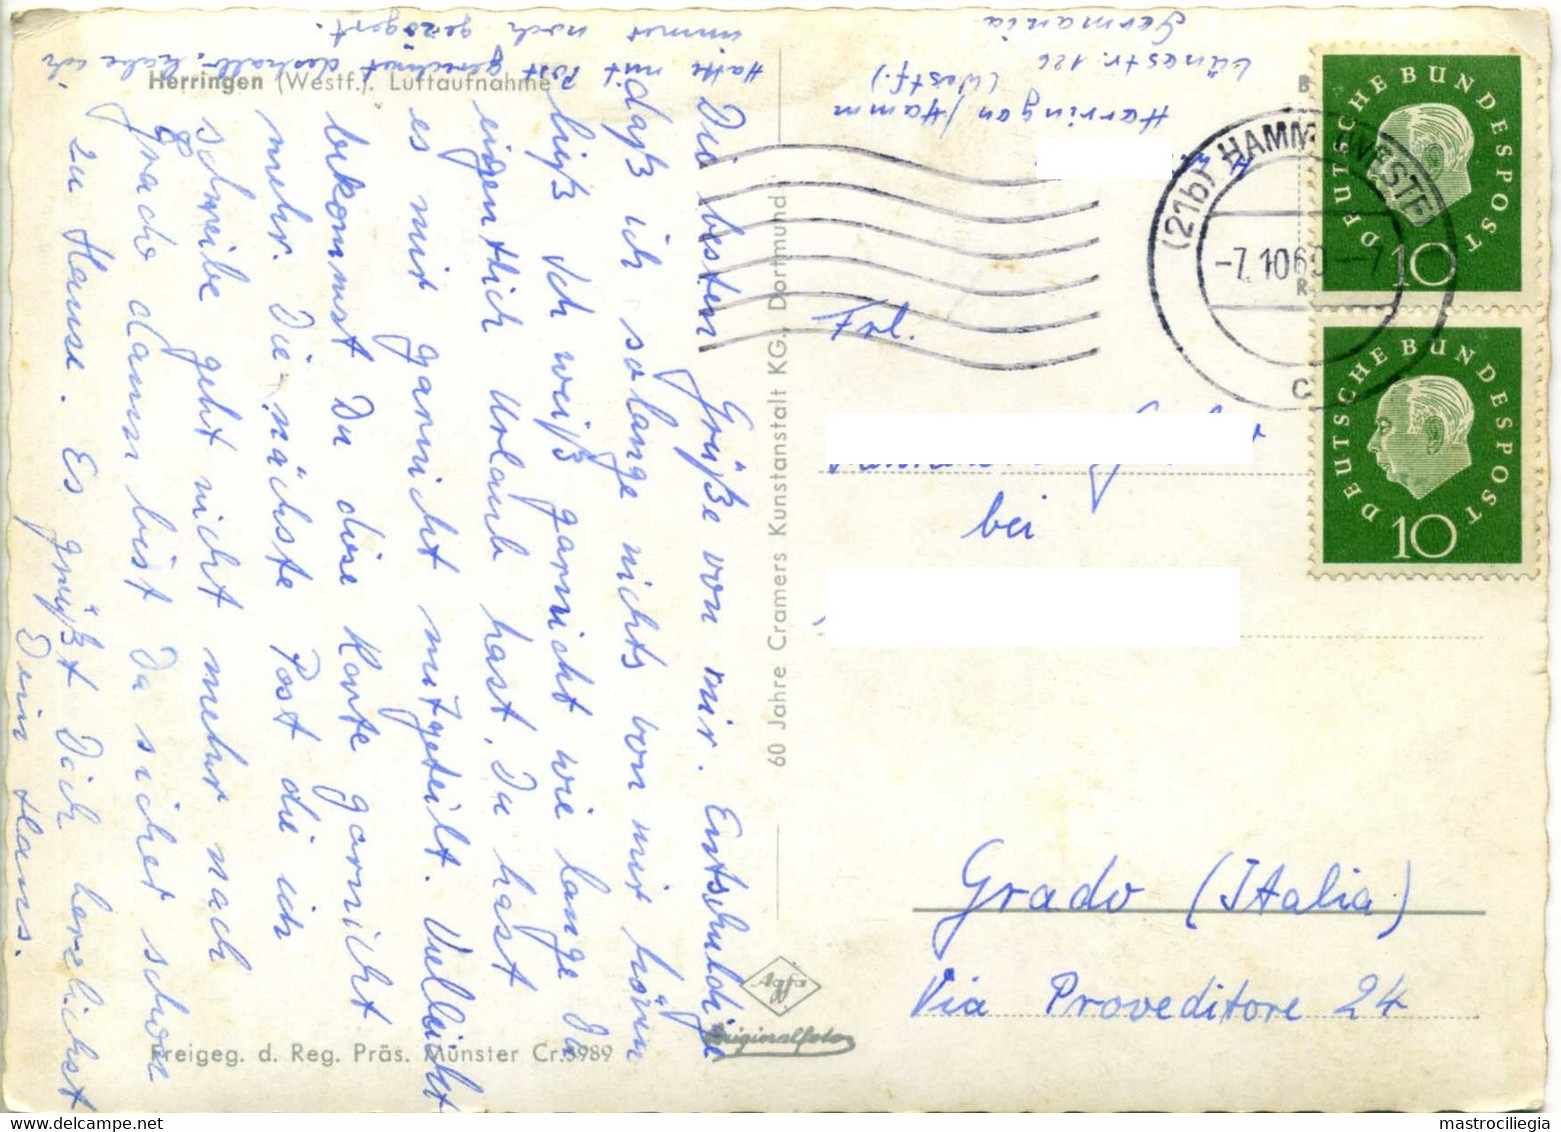 Herringen (Westf.). Luftaufnahme
Die besten Grüße von mir. Entschuldige
daß ich solange nichts von mir hören
ließ. Ich weiß garnicht wie lange Du
eigentlich Urlaub hast. Du hast
es mir garnicht mitgeteilt. Vielleicht
bekommst Du diese Karte garnicht
mehr. Die nächste Post die ich
schreibe geht nicht mehr nach
Grado dann bist Du sicher schon
zu Hause. Es grüßt Dich herzlichst
Dein Hans.
Hatte mit Post gerechnet deshalb habe ich
immer noch gezögert.
Freigeg. d. Reg. Präs. Münster Cr.3989
60 Jahre Cramers Kunstanstalt KG, Dortmund
Agfa
Originalfoto
Herringen/Hamm
(Westf.)
Lünestr. 126
Germania
(21b) HAMM (WESTF)
-7.10 60 -7
c
DEUTSCHE BUNDESPOST
10
DEUTSCHE BUNDESPOST
10
Frl.
bei
Grado (Italia)
Via Proveditore 24
mastrociliegia